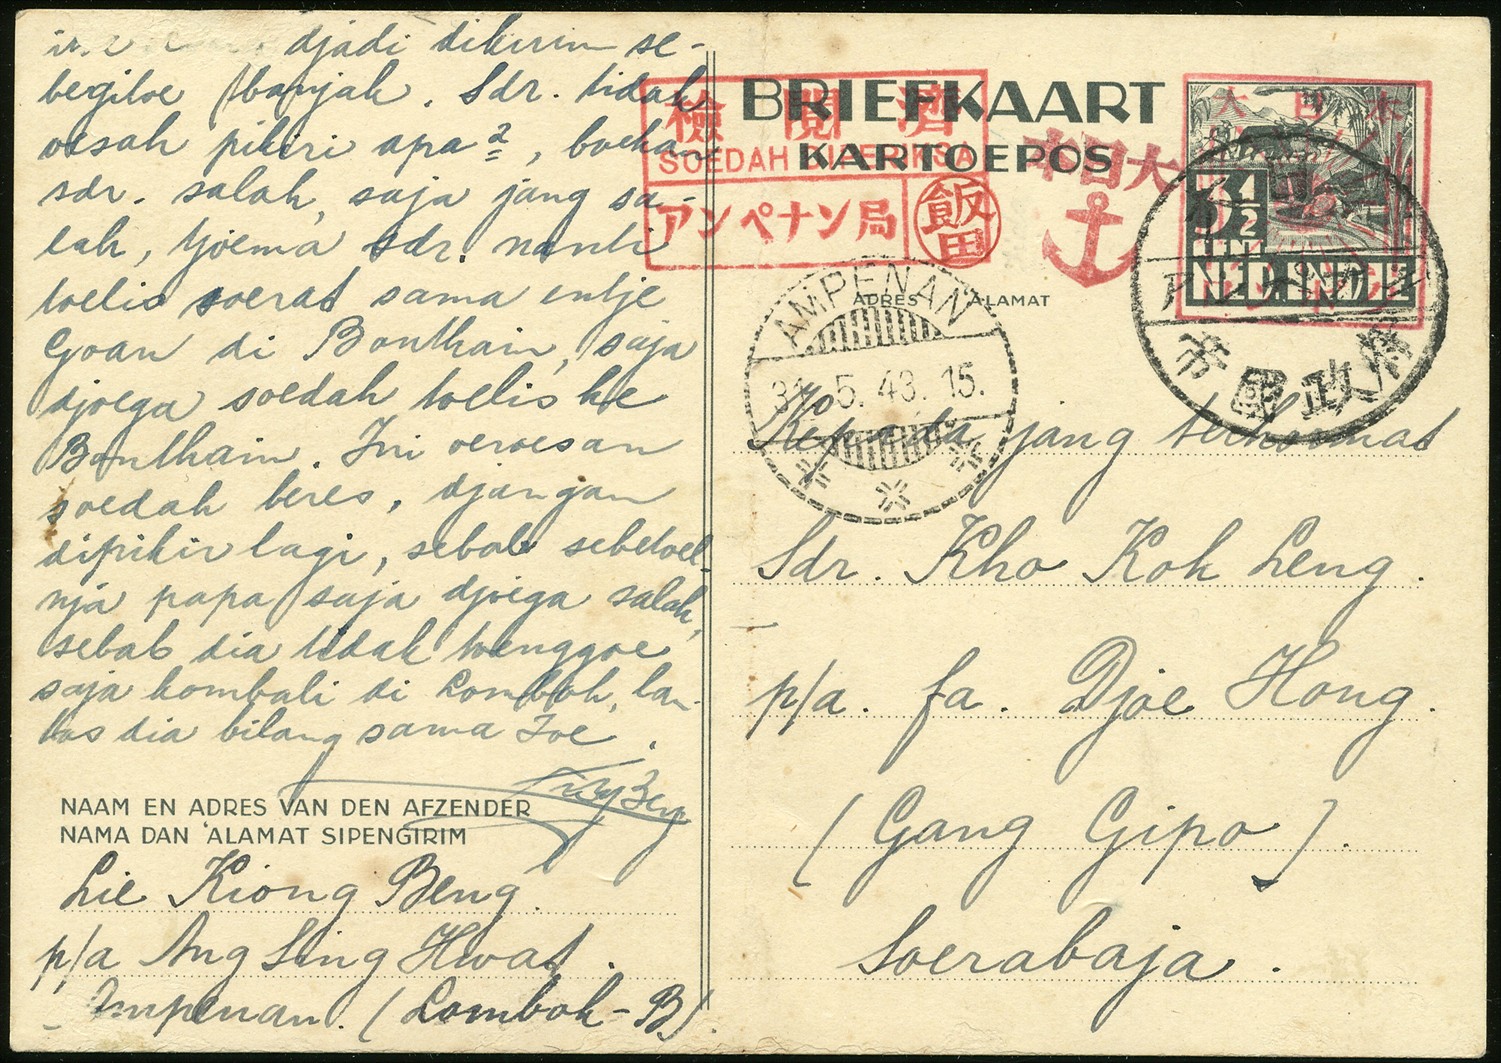 djadi dikirim se-
begitoe banjak. Sdr. tidak
oesah pikiri apa2, boekan
sdr. salah, saja jang sa-
lah, tjoema sdr. nanti
toelis soerat sama entje
Goan di Bonthain, saja
djoega soedah toelis ke
Bonthain. Ini oeroesan
soedah beres, djangan
dipikir lagi, sebab sebetoel-
nja papa saja djoega salah,
sebab dia tidak toenggoe
saja kombali di Lombok, lan-
tas dia bilang sama Joe.
NAAM EN ADRES VAN DEN AFZENDER
NAMA DAN ALAMAT SIPENGIRIM
Lie Kiong Beng.
p/a Ang Sing Hwat.
Ampenan. (Lombok-B)
BRIEFKAART
KARTOEPOS
檢閲濟
SOEDAH DIPERIKSA
アンペナン局
飯田
本日大
大日本
3 1/2
CENT
NED. INDIE
ADRES ALAMAT
AMPENAN
31.5.43.15.
アンペナン
Kepada jang terhormat
Sdr. Kho Koh Leng.
p/a. fa. Djoe Hong.
(Gang Gipo).
Soerabaja.